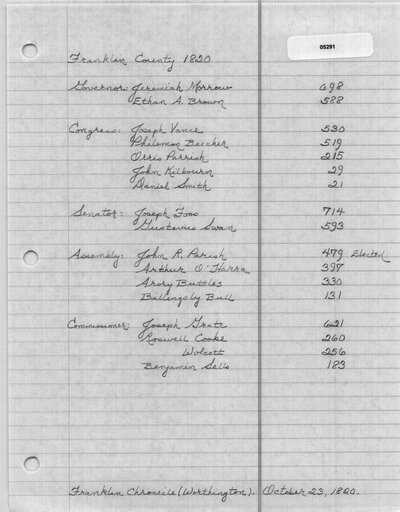 05291
Franklin County 1820
Governor: Jeremiah Morrow 698
Ethan A. Brown 588
Congress: Joseph Vance 530
Philemon Beecher 519
Orris Parrish 215
John Kilbourn 29
Daniel Smith 21
Senator: Joseph Foos 714
Gustavus Swan 593
Assembly: John R. Parish 479 Elected
Arthur O'Harra 397
Arory Buttles 330
Billingsby Bull 131
Commissioner: Joseph Grate 621
Roswell Cooke 260
Wolcott 256
Benjamin Sells 183
Franklin Chronicle (Worthington). October 23, 1820.